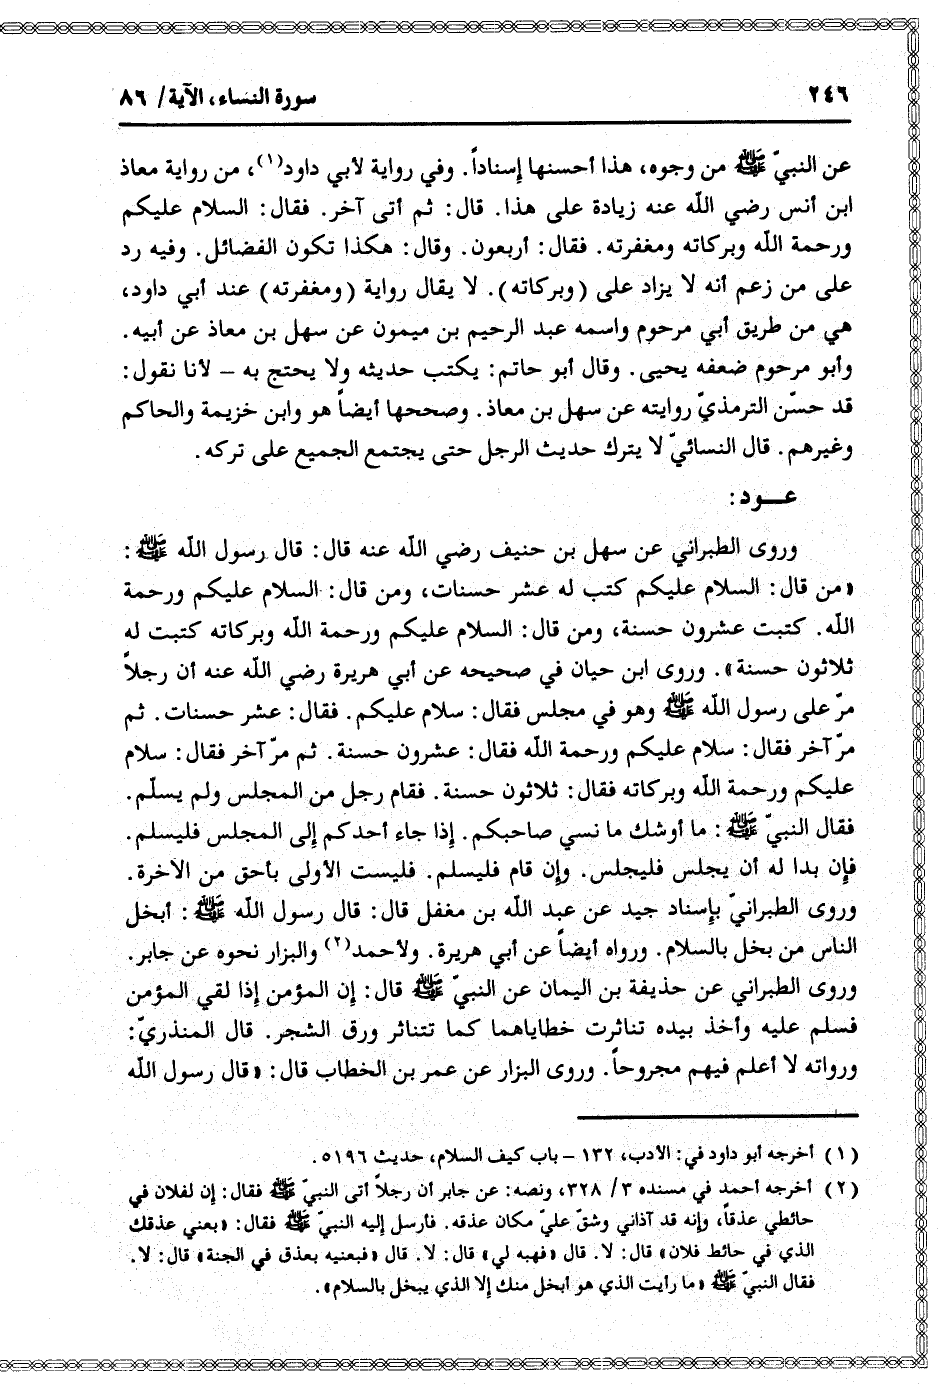 ٢٤٦ سورة النساء، الآية/ ٨٦
عن النبيّ ﷺ من وجوه، هذا أحسنها إسناداً. وفي رواية لأبي داود(١)، من رواية معاذ
ابن أنس رضي اللّه عنه زيادة على هذا. قال: ثم أتى آخر. فقال: السلام عليكم
ورحمة اللّه وبركاته ومغفرته. فقال: أربعون. وقال: هكذا تكون الفضائل. وفيه رد
على من زعم أنه لا يزاد على (وبركاته). لا يقال رواية (ومغفرته) عند أبي داود،
هي من طريق أبي مرحوم واسمه عبد الرحيم بن ميمون عن سهل بن معاذ عن أبيه.
وأبو مرحوم ضعفه يحيى. وقال أبو حاتم: يكتب حديثه ولا يحتج به – لأنا نقول:
قد حسّن الترمذيّ روايته عن سهل بن معاذ. وصححها أيضاً هو وابن خزيمة والحاكم
وغيرهم. قال النسائيّ لا يترك حديث الرجل حتى يجتمع الجميع على تركه.
عــود:
وروى الطبراني عن سهل بن حنيف رضي اللّه عنه قال: قال رسول اللّه ﷺ:
«من قال: السلام عليكم كتب له عشر حسنات، ومن قال: السلام عليكم ورحمة
اللّه. كتبت عشرون حسنة، ومن قال: السلام عليكم ورحمة اللّه وبركاته كتبت له
ثلاثون حسنة». وروى ابن حيان في صحيحه عن أبي هريرة رضي اللّه عنه أن رجلاً
مرّ على رسول اللّه ﷺ وهو في مجلس فقال: سلام عليكم. فقال: عشر حسنات. ثم
مرّ آخر فقال: سلام عليكم ورحمة اللّه فقال: عشرون حسنة. ثم مرّ آخر فقال: سلام
عليكم ورحمة اللّه وبركاته فقال: ثلاثون حسنة. فقام رجل من المجلس ولم يسلّم.
فقال النبيّ ﷺ: ما أوشك ما نسي صاحبكم. إذا جاء أحدكم إلى المجلس فليسلم.
فإن بدا له أن يجلس فليجلس. وإن قام فليسلم. فليست الأولى بأحق من الآخرة.
وروى الطبرانيّ بإسناد جيد عن عبد اللّه بن مغفل قال: قال رسول اللّه ﷺ: أبخل
الناس من بخل بالسلام. ورواه أيضاً عن أبي هريرة. ولأحمد(٢) والبزار نحوه عن جابر.
وروى الطبراني عن حذيفة بن اليمان عن النبيّ ﷺ قال: إن المؤمن إذا لقي المؤمن
فسلم عليه وأخذ بيده تناثرت خطاياهما كما تتناثر ورق الشجر. قال المنذريّ:
ورواته لا أعلم فيهم مجروحاً. وروى البزار عن عمر بن الخطاب قال: «قال رسول اللّه
(١) أخرجه أبو داود في: الأدب، ١٣٢ – باب كيف السلام، حديث ٥١٩٦.
(٢) أخرجه أحمد في مسنده ٣/ ٣٢٨، ونصه: عن جابر أن رجلاً أتى النبيّ ﷺ فقال: إن لفلان في
حائطي عذقاً، وإنه قد آذاني وشقّ عليّ مكان عذقه. فأرسل إليه النبيّ ﷺ فقال: «بعني عذقك
الذي في حائط فلان» قال: لا. قال «فهبه لي» قال: لا. قال «فبعنيه بعذق في الجنة» قال: لا.
فقال النبيّ ﷺ «ما رأيت الذي هو أبخل منك إلا الذي يبخل بالسلام».